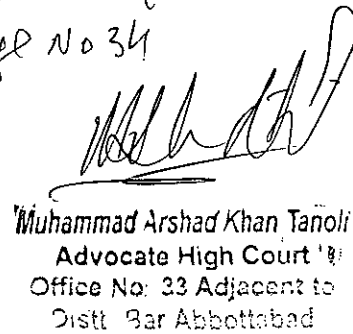 No 34
Muhammad Arshad Khan Tanoli
Advocate High Court
Office No: 33 Adjacent to
Distt Bar Abbottabad